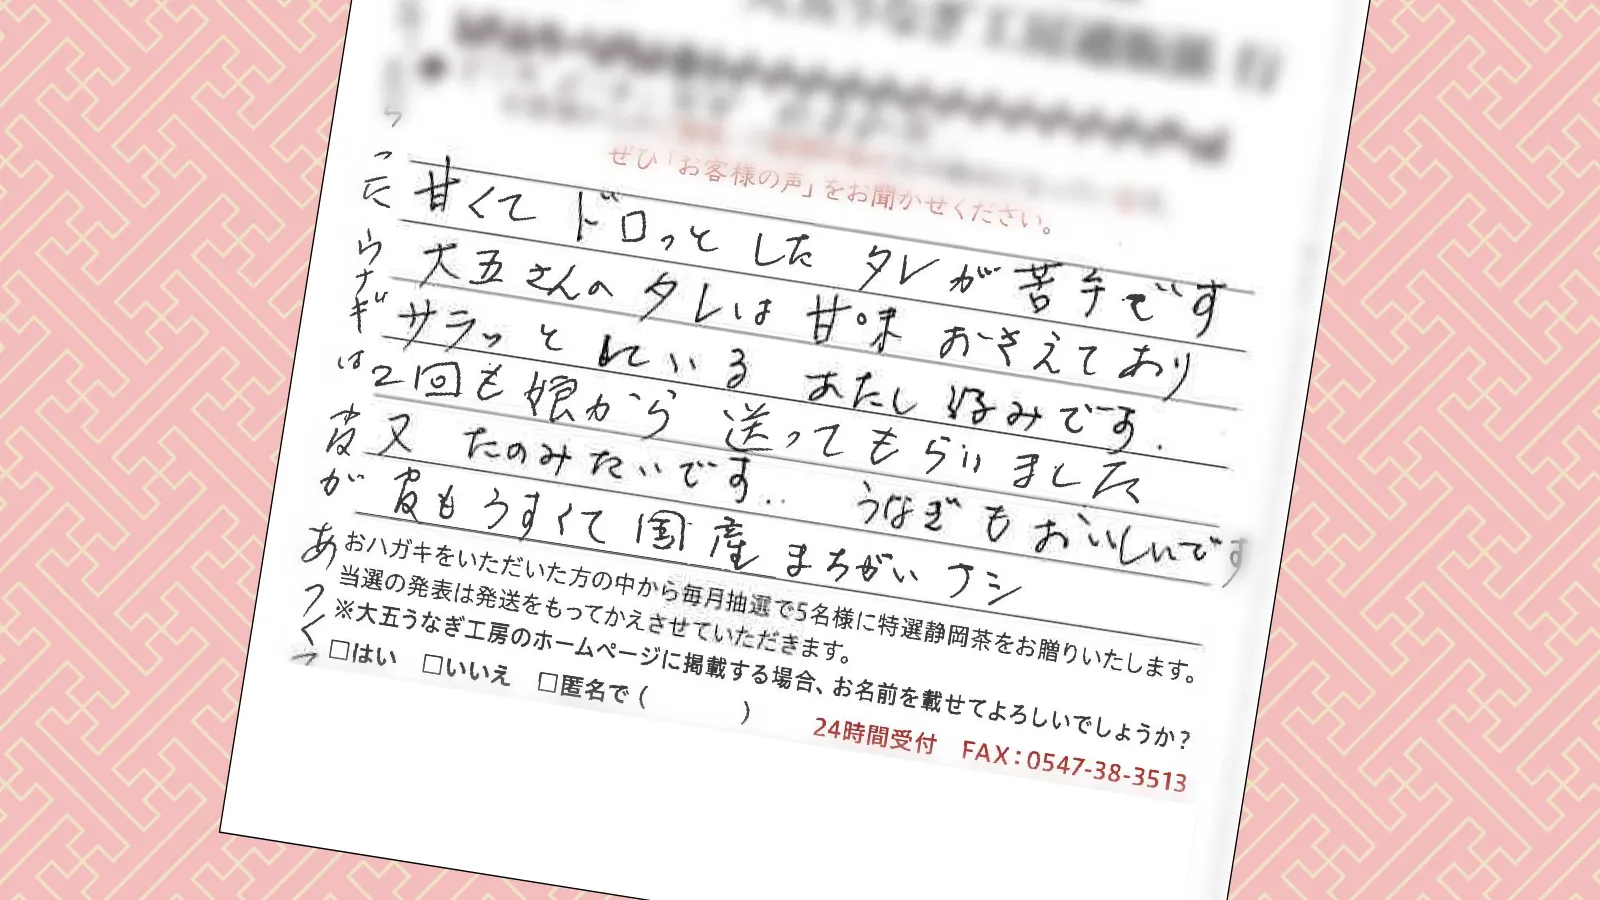 大五うなぎ工房通販係 行
ぜひ「お客様の声」をお聞かせください。
甘くて ドロっと した タレ が 苦手です
大五さんの タレは 甘味 おさえて あり
サラッと している あたし 好みです.
2回も 娘から 送って もらいました
又 たのみたいです.. うなぎも おいしいです
皮も うすくて 国産 まちがい ナシ
った
ウナギは
皮が
あつくて
おハガキをいただいた方の中から毎月抽選で5名様に特選静岡茶をお贈りいたします。
当選の発表は発送をもってかえさせていただきます。
※大五うなぎ工房のホームページに掲載する場合、お名前を載せてよろしいでしょうか?
□はい □いいえ □匿名で( )
24時間受付 FAX:0547-38-3513